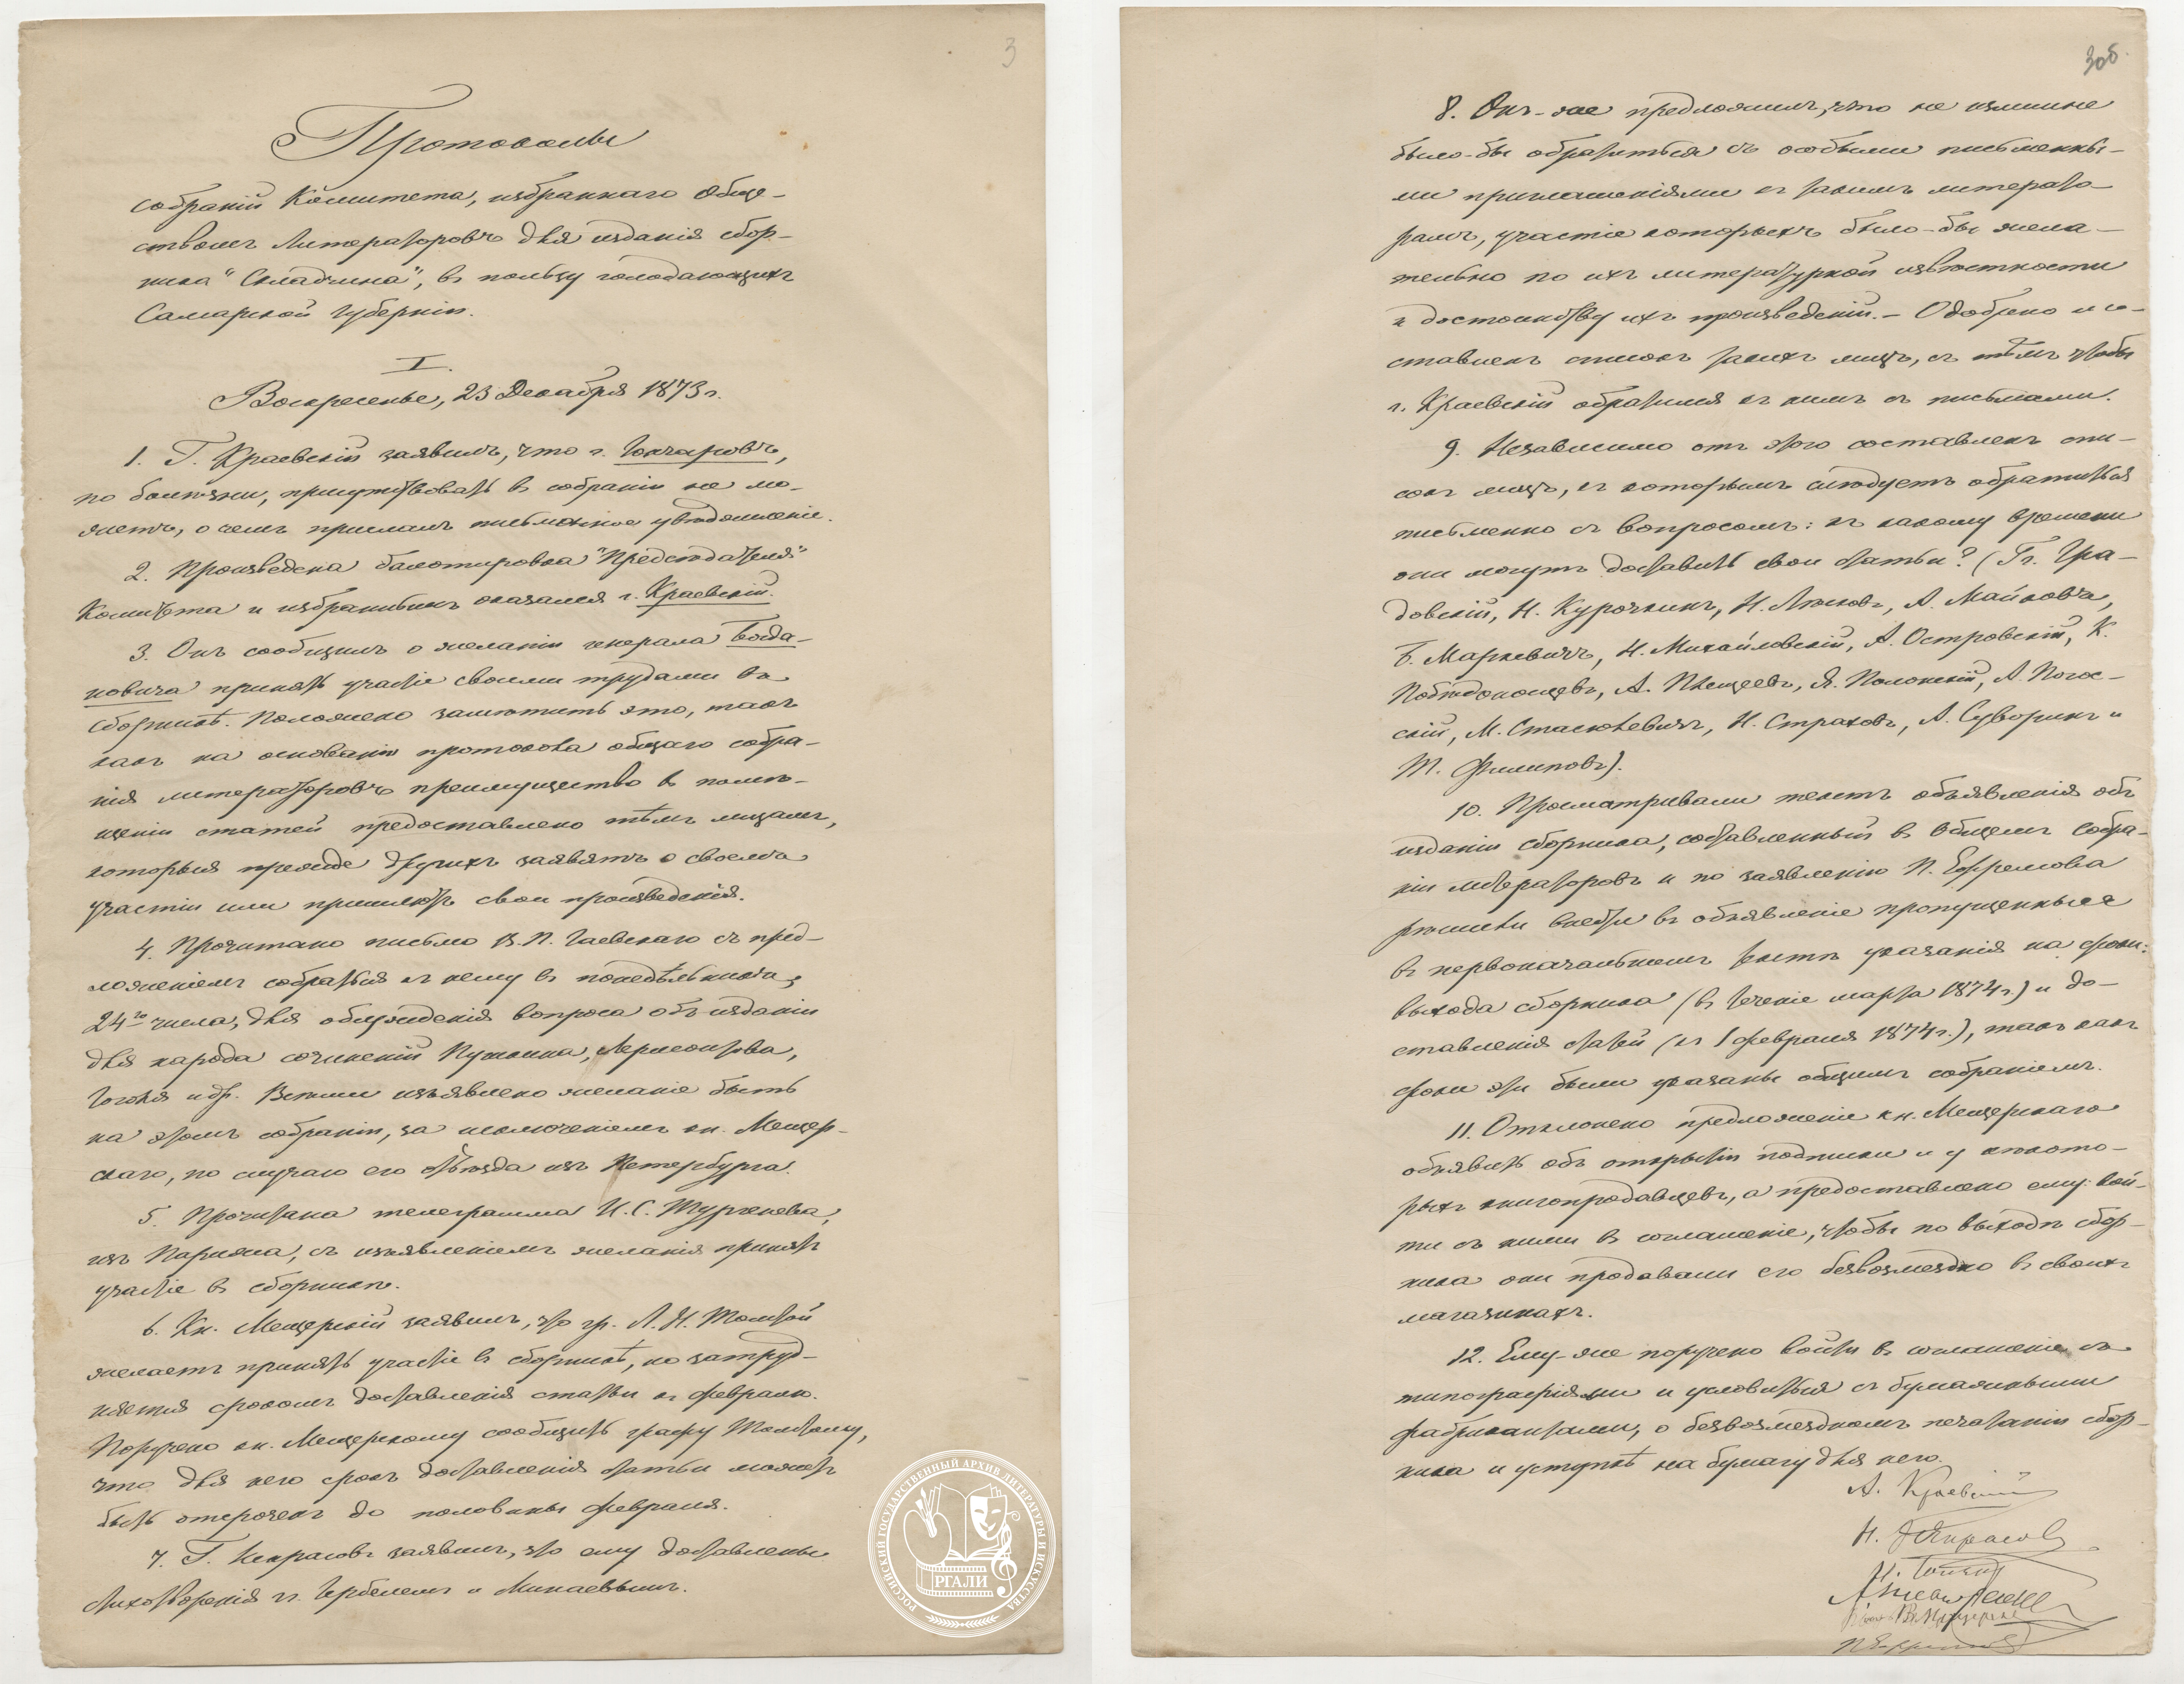 3
Протоколы
собраній Комитета, избраннаго Обще-
ствомъ Литераторовъ для изданія сбор-
ника "Складчина", въ пользу голодающихъ
Самарской Губерніи.
I.
Воскресенье, 23 Декабря 1873 г.
1. Г. Краевскій заявилъ, что г. Гончаровъ,
по болѣзни, присутствовать въ собраніи не мо-
жетъ, о чемъ прислалъ письменное увѣдомленіе.
2. Произведена балотировка "Предсѣдателя"
Комитета и избраннымъ оказался г. Краевскій.
3. Онъ сообщилъ о желаніи генерала Богда-
новича принять участіе своими трудами въ
Сборникѣ. Положено замѣтить это, такъ
какъ на основаніи протокола общаго собра-
нія литераторовъ преимущество въ помѣ-
щеніи статей предоставлено тѣмъ лицамъ,
которыя прежде другихъ заявятъ о своемъ
участіи или пришлютъ свои произведенія.
4. Прочитано письмо В. П. Гаевскаго съ пред-
ложеніемъ собраться къ нему въ понедѣльникъ,
24го числа, для обсужденія вопроса объ изданіи
для народа сочиненій Пушкина, Лермонтова,
Гоголя и др. Всѣми изъявлено желаніе быть
на этомъ собраніи, за исключеніемъ кн. Мещер-
скаго, по случаю его отъѣзда изъ Петербурга.
5. Прочитана телеграмма И. С. Тургенева,
изъ Парижа, съ изъявленіемъ желанія принять
участіе въ сборникѣ.
6. Кн. Мещерскій заявилъ, что гр. Л. Н. Толстой
желаетъ принять участіе въ сборникѣ, но затруд-
няется срокомъ доставленія статьи къ февралю.
Поручено кн. Мещерскому сообщить графу Толстому,
что для него срокъ доставленія статьи можетъ
быть отсроченъ до половины февраля.
7. Г. Некрасовъ заявилъ, что ему доставлены
стихотворенія гг. Гербелемъ и Минаевымъ.
РОССИЙСКИЙ ГОСУДАРСТВЕННЫЙ АРХИВ ЛИТЕРАТУРЫ И ИСКУССТВА
РГАЛИ
3об.
8. Онъ-же предложилъ, что не излишне
было-бы обратиться съ особыми письменны-
ми приглашеніями къ такимъ литерато-
рамъ, участіе которыхъ было-бы жела-
тельно по ихъ литературной извѣстности
и достоинству ихъ произведеній. – Одобрено и со-
ставленъ списокъ такихъ лицъ, съ тѣмъ чтобы
г. Краевскій обратился къ нимъ съ письмами.
9. Независимо отъ этого составленъ спи-
сокъ лицъ, къ которымъ слѣдуетъ обратиться
письменно съ вопросомъ: къ какому времени
они могутъ доставить свои статьи? (Гг. Гра-
довскій, Н. Курочкинъ, Н. Лѣсковъ, А. Майковъ,
Б. Маркевичъ, Н. Михайловскій, А. Островскій, К.
Побѣдоносцевъ, А. Плещеевъ, Я. Полонскій, А. Погос-
скій, М. Стасюлевичъ, Н. Страховъ, А. Суворинъ и
Т. Филиповъ).
10. Просматривали текстъ объявленія объ
изданіи сборника, составленный въ Общемъ Собра-
ніи литераторовъ и по заявленію П. Ефремова
рѣшили внести въ объявленіе пропущенныя
въ первоначальномъ текстѣ указанія на сроки:
выхода сборника (въ теченіе марта 1874 г.) и до-
ставленія статей (къ 1 февраля 1874 г.), такъ какъ
сроки эти были указаны общимъ собраніемъ.
11. Отклонено предложеніе кн. Мещерскаго
объявить объ открытіи подписки и у нѣкото-
рыхъ книгопродавцевъ, а предоставлено ему вой-
ти съ ними въ соглашеніе, чтобы по выходѣ сбор-
ника они продавали его безвозмездно въ своихъ
магазинахъ.
12. Ему-же поручено войти въ соглашеніе съ
типографіями и условиться съ бумажными
фабрикантами, о безвозмездномъ печатаніи сбор-
ника и уступкѣ на бумагу для него.
А. Краевскій
Н. Некрасовъ
П. Ефремовъ